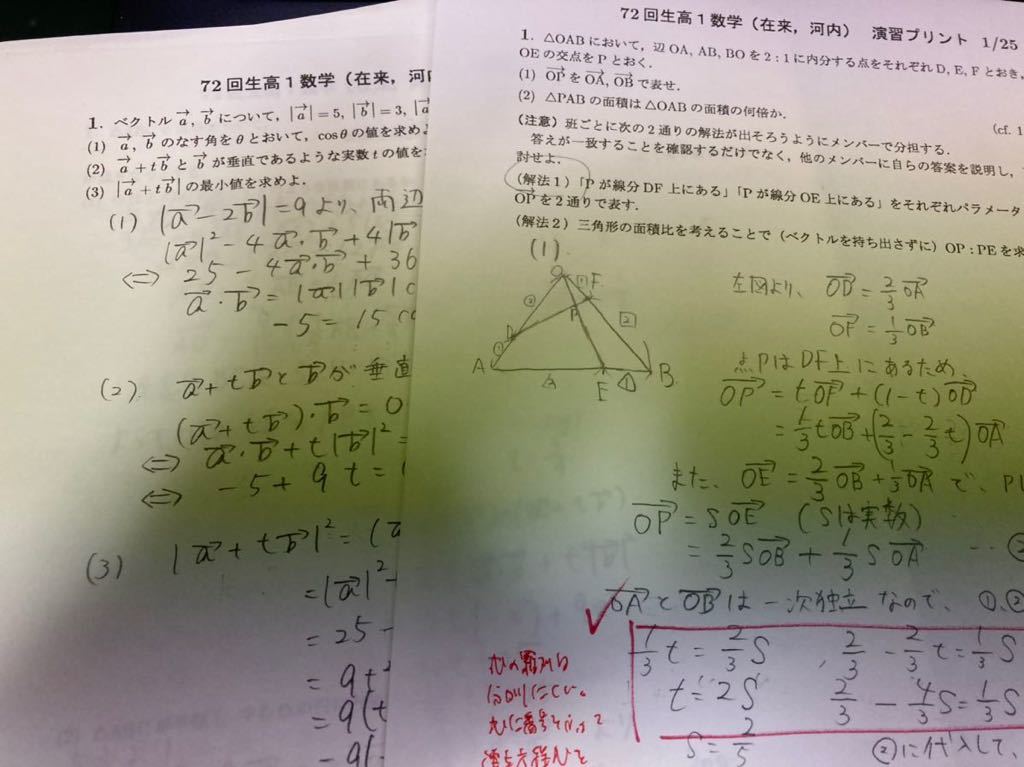 72回生高1数学(在来,河内
1. ベクトル a→, b→ について,|a→|=5, |b→|=3, |a
(1) a→, b→ のなす角をθとおいて,cosθの値を求めよ
(2) a→+tb→ と b→ が垂直であるような実数tの値を
(3) |a→+tb→| の最小値を求めよ.
(1) |a→-2b→|=9より、両辺
|a→|²-4a→・b→+4|b
⇔ 25-4a→・b→+36
a→・b→=|a→||b→|c
-5=15co
(2) a→+tb→とb→が垂直
(a→+tb→)・b→=0
⇔ a→・b→+t|b→|²=
⇔ -5+9t=
(3) |a→+tb→|²=(a
=|a→|²-
=25-
=9t²
=9(t
72回生高1数学(在来,河内) 演習プリント 1/25
1. △OABにおいて,辺OA, AB, BOを2:1に内分する点をそれぞれD, E, Fとおき,
OEの交点をPとおく.
(1) OP→をOA→, OB→で表せ.
(2) △PABの面積は△OABの面積の何倍か.
(cf. 1
(注意)班ごとに次の2通りの解法が出そろうようにメンバーで分担する.
答えが一致することを確認するだけでなく,他のメンバーに自らの答案を説明し,
討せよ.
(解法1)「Pが線分DF上にある」「Pが線分OE上にある」をそれぞれパラメータ
OP→を2通りで表す.
(解法2)三角形の面積比を考えることで(ベクトルを持ち出さずに)OP:PEを求
(1)
O
F
D
P
A
E
B
② ① 1 2
左図より、OD→=2/3OA→
OF→=1/3OB→
点PはDF上にあるため、
OP→=tOF→+(1-t)OD→
=1/3tOB→+(2/3-2/3t)OA→
また、OE→=2/3OB→+1/3OA→で、P
OP→=sOE→ (sは実数)
=2/3sOB→+1/3sOA→ …②
✓OA→とOB→は一次独立なので、①,②
1/3t=2/3s , 2/3-2/3t=1/3s
t=2s 2/3-4/3s=1/3s
s=2/5 ②に代入して、